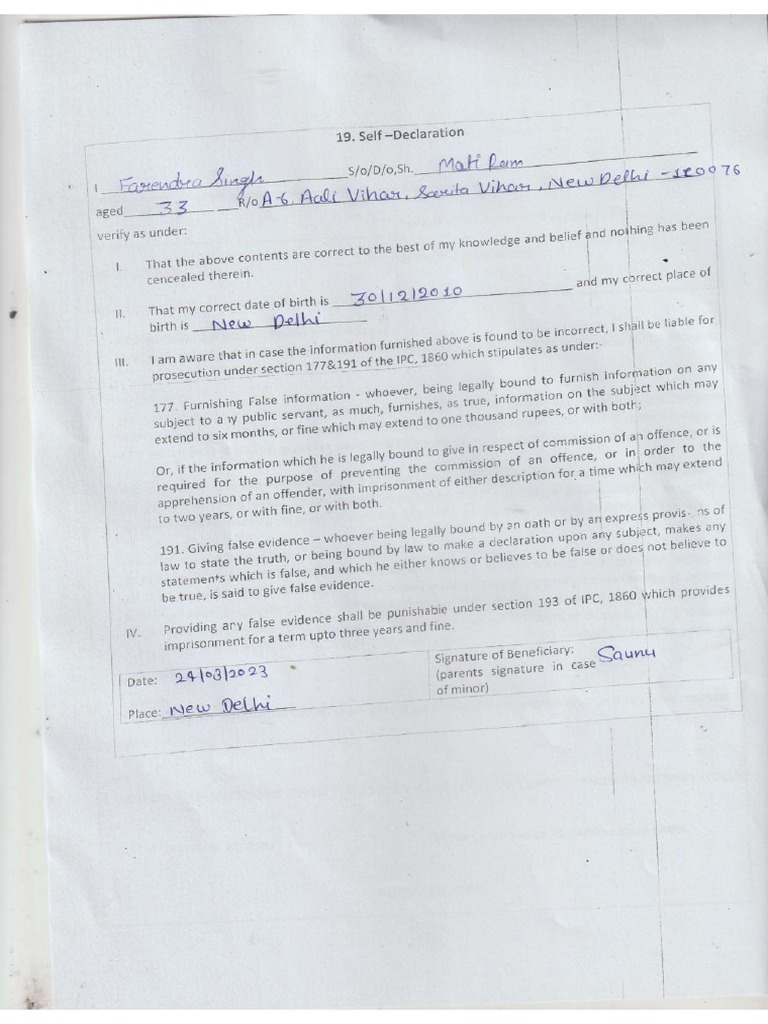 19. Self –Declaration
I Farendra Singh S/o/D/o,Sh. Mati Ram
aged 33 R/o A-6, Aali Vihar, Sarita Vihar, New Delhi - 110076
verify as under:
I. That the above contents are correct to the best of my knowledge and belief and nothing has been
cencealed therein.
II. That my correct date of birth is 30/12/2010 and my correct place of
birth is New Delhi
III. I am aware that in case the information furnished above is found to be incorrect, I shall be liable for
prosecution under section 177&191 of the IPC, 1860 which stipulates as under:-
177. Furnishing False information - whoever, being legally bound to furnish information on any
subject to any public servant, as much, furnishes, as true, information on the subject which may
extend to six months, or fine which may extend to one thousand rupees, or with both;
Or, if the information which he is legally bound to give in respect of commission of an offence, or is
required for the purpose of preventing the commission of an offence, or in order to the
apprehension of an offender, with imprisonment of either description for a time which may extend
to two years, or with fine, or with both.
191. Giving false evidence – whoever being legally bound by an oath or by an express provisions of
law to state the truth, or being bound by law to make a declaration upon any subject, makes any
statements which is false, and which he either knows or believes to be false or does not believe to
be true, is said to give false evidence.
IV. Providing any false evidence shall be punishable under section 193 of IPC, 1860 which provides
imprisonment for a term upto three years and fine.
Date: 24/03/2023
Place: New Delhi
Signature of Beneficiary: Saunu
(parents signature in case
of minor)